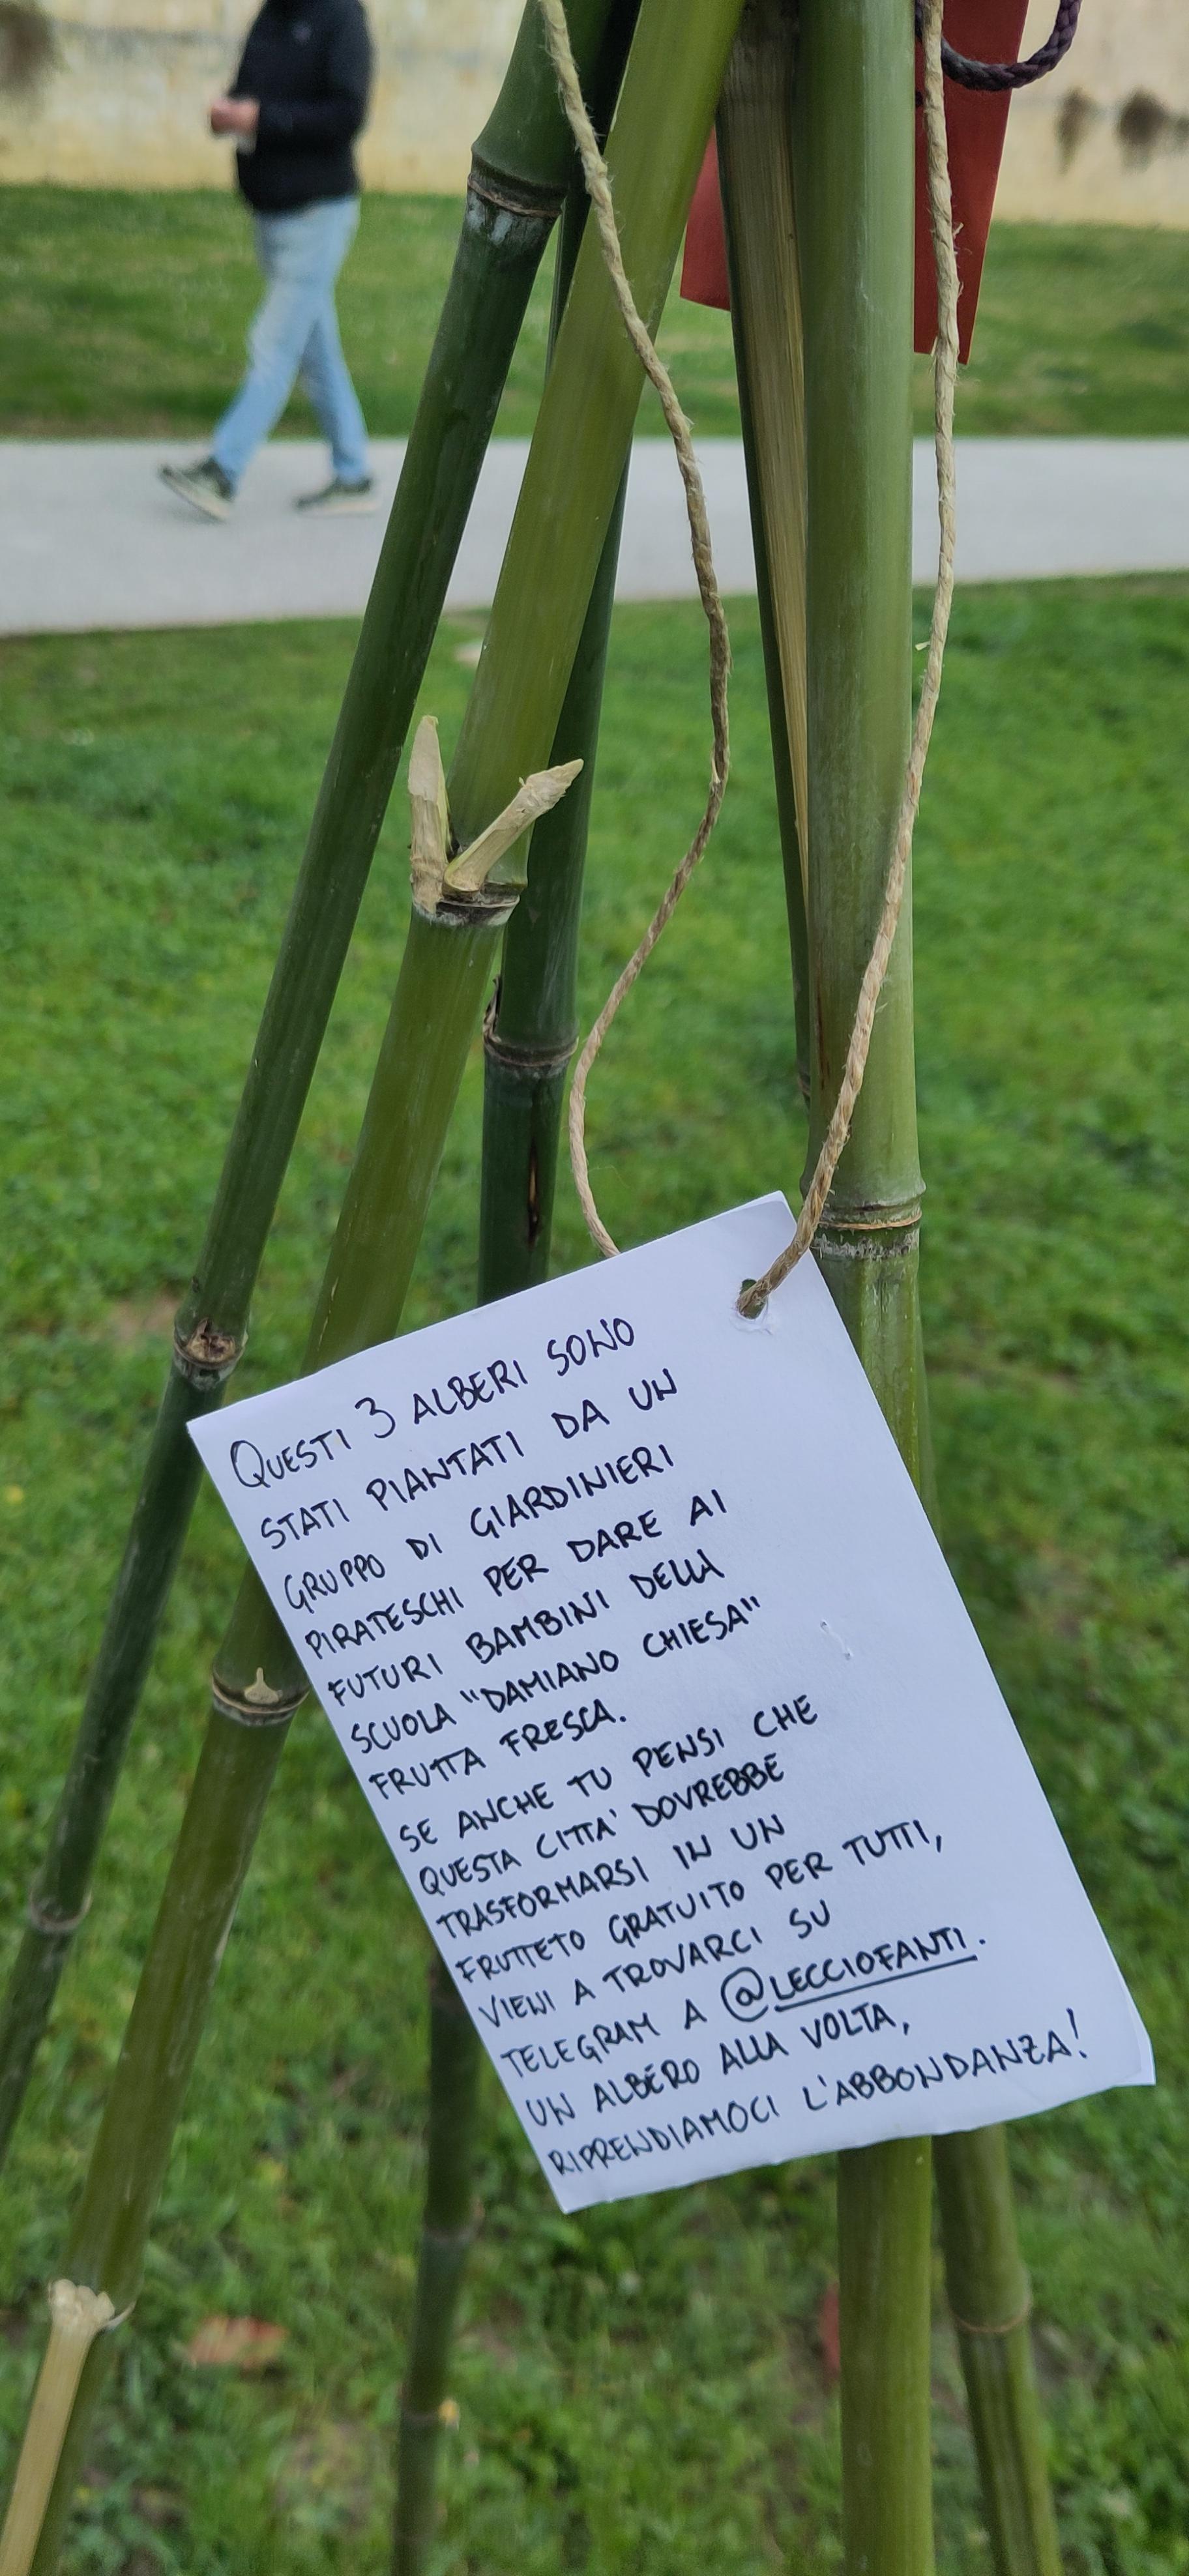 QUESTI 3 ALBERI SONO
STATI PIANTATI DA UN
GRUPPO DI GIARDINIERI
PIRATESCHI PER DARE AI
FUTURI BAMBINI DELLA
SCUOLA "DAMIANO CHIESA"
FRUTTA FRESCA.
SE ANCHE TU PENSI CHE
QUESTA CITTA' DOVREBBE
TRASFORMARSI IN UN
FRUTTETO GRATUITO PER TUTTI,
VIENI A TROVARCI SU
TELEGRAM A @LECCIOFANTI.
UN ALBERO ALLA VOLTA,
RIPRENDIAMOCI L'ABBONDANZA!